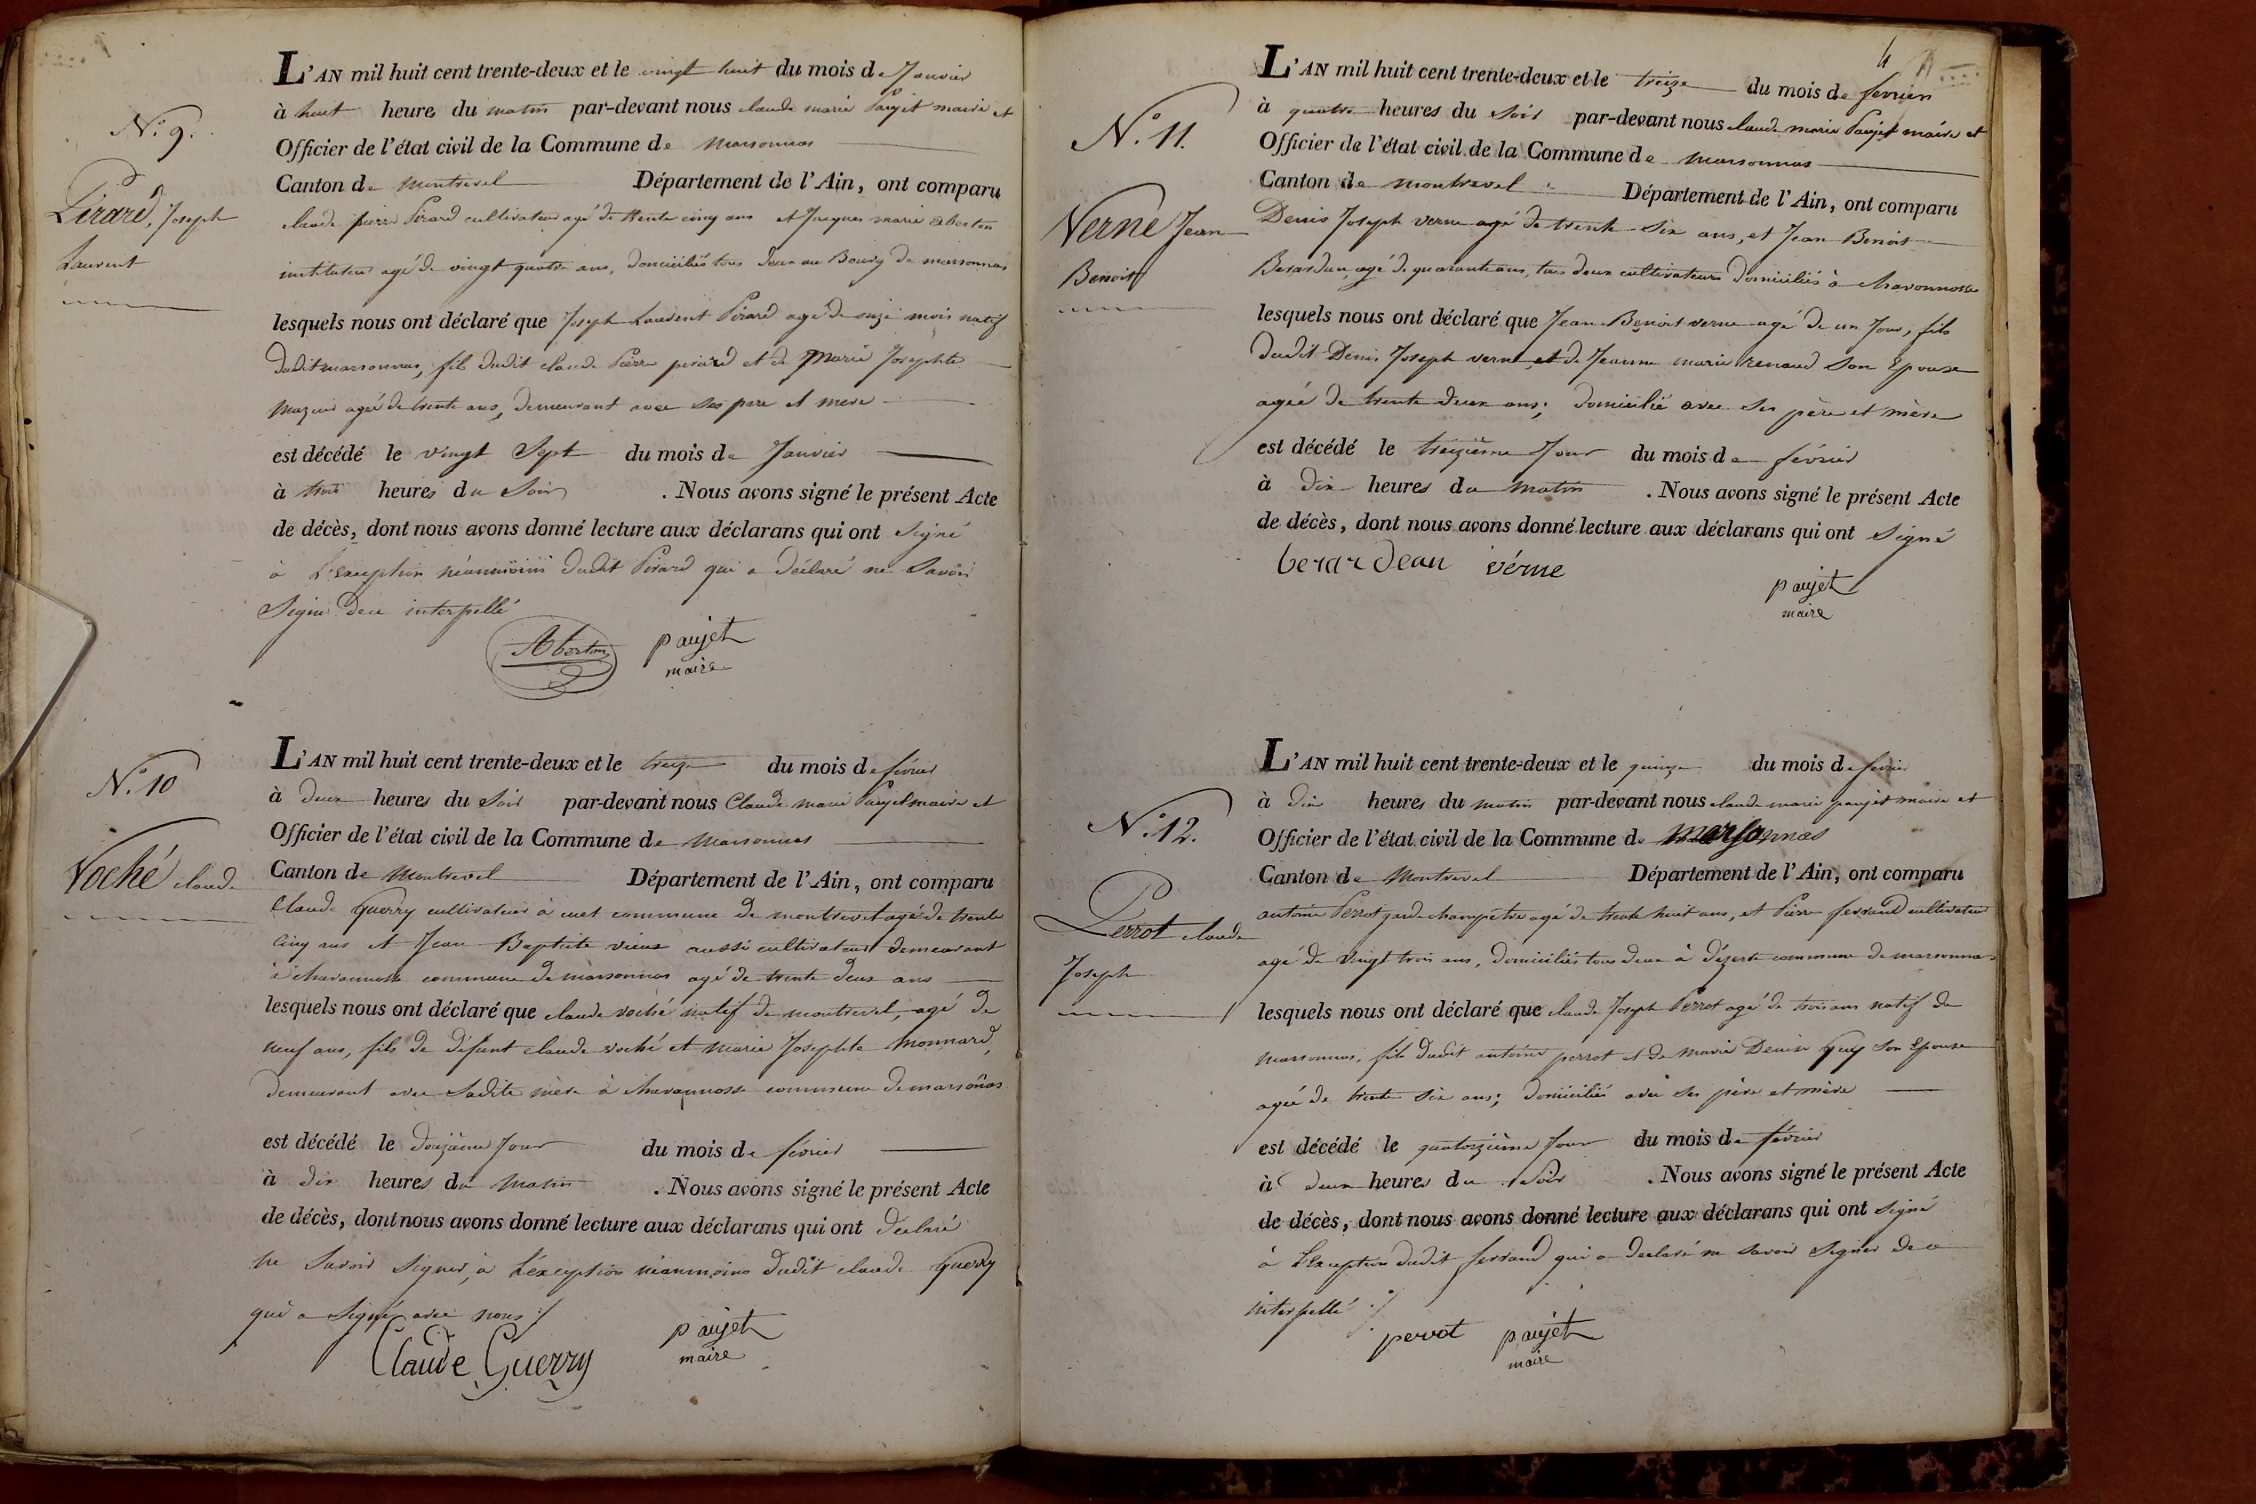 N.° 9.
Pirard, Joseph
Laurent
L'AN mil huit cent trente-deux et le vingt huit du mois de Janvier
à huit heures du matin par-devant nous claude marie Paujet maire et
Officier de l'état civil de la Commune de marsonnas
Canton de montrevel Département de l'Ain, ont comparu
claude pierre Pirard cultivateur agé de trente cinq ans et Jacques marie Aberton
instituteur agé de vingt quatre ans, domiciliés tous deux au Bourg de marsonnas
lesquels nous ont déclaré que Joseph Laurent Pirard agé de onze mois natif
dudit marsonnas, fils dudit claude Pierre pirard et de Marie Josephte
mazuir agée de trente ans, demeurant avec ses pere et mere
est décédé le vingt Sept du mois de Janvier
à trois heures du Soir . Nous avons signé le présent Acte
de décès, dont nous avons donné lecture aux déclarans qui ont signé
à L'exception néanmoins dudit Pirard qui a déclaré ne Savoir
Signer de ce interpellé
Aberton paujet
maire
N.° 10
Voché claude
L'AN mil huit cent trente-deux et le treize du mois de février
à deux heures du Soir par-devant nous Claude marie Paujet maire et
Officier de l'état civil de la Commune de marsonnas
Canton de Montrevel Département de l'Ain, ont comparu
Claude Guerry cultivateur à cuet commune de montrevel agé de trente
cinq ans et Jean Baptiste vieux aussi cultivateur demeurant
à chavannosse commune de marsonnas agé de trente deux ans
lesquels nous ont déclaré que claude voché natif de montrevel, agé de
neuf ans, fils de défunt claude voché et marie Josephte Monnard,
demeurant avec Sadite mère à chavannosse commune de marsonas
est décédé le douzième Jour du mois de février
à dix heures du Matin . Nous avons signé le présent Acte
de décès, dont nous avons donné lecture aux déclarans qui ont déclaré
ne Savoir Signer, à L'exception néanmoins dudit claude Guerry
qui a Signé avec nous ./
Claude Guerry paujet
maire
4
N.° 11.
Verne Jean
Benoit
L'AN mil huit cent trente-deux et le treize du mois de fevrier
à quatre heures du soir par-devant nous claude marie Paujet maire et
Officier de l'état civil de la Commune de marsonnas
Canton de montrevel Département de l'Ain, ont comparu
Denis Joseph verne agé de trente Six ans, et Jean Benoit
Berardan agé de quarante ans, tous deux cultivateurs domiciliés à chavannosse
lesquels nous ont déclaré que Jean Benoit verne agé de un Jour, fils
dudit Denis Joseph verne et de Jeanne marie renaud Son Epouse
agée de trente deux ans; domicilié avec Ses père et mère
est décédé le treizième Jour du mois de février
à dix heures du matin . Nous avons signé le présent Acte
de décès, dont nous avons donné lecture aux déclarans qui ont Signé
berardean vérne
paujet
maire
N.° 12.
Perrot claude
Joseph
L'AN mil huit cent trente-deux et le quinze du mois de fevrier
à dix heures du matin par-devant nous claude marie paujet maire et
Officier de l'état civil de la Commune de marsonnas
Canton de Montrevel Département de l'Ain, ont comparu
antoine Perrot garde champêtre agé de trente huit ans, et Pierre ferrand cultivateur
agé de Vingt trois ans, domiciliés tous deux à dézerte commune de marsonnas
lesquels nous ont déclaré que claude Joseph Perrot agé de trois ans natif de
marsonnas, fils dudit antoine perrot et de Marie Denise Guy Son Epouse
agée de trente Six ans; domicilié avec Ses père et mère
est décédé le quatorzième Jour du mois de février
à deux heures du Soir . Nous avons signé le présent Acte
de décès, dont nous avons donné lecture aux déclarans qui ont signé
à L'exception dudit ferrand qui a declaré ne savoir Signer de ce
interpellé ./
perrot paujet
maire